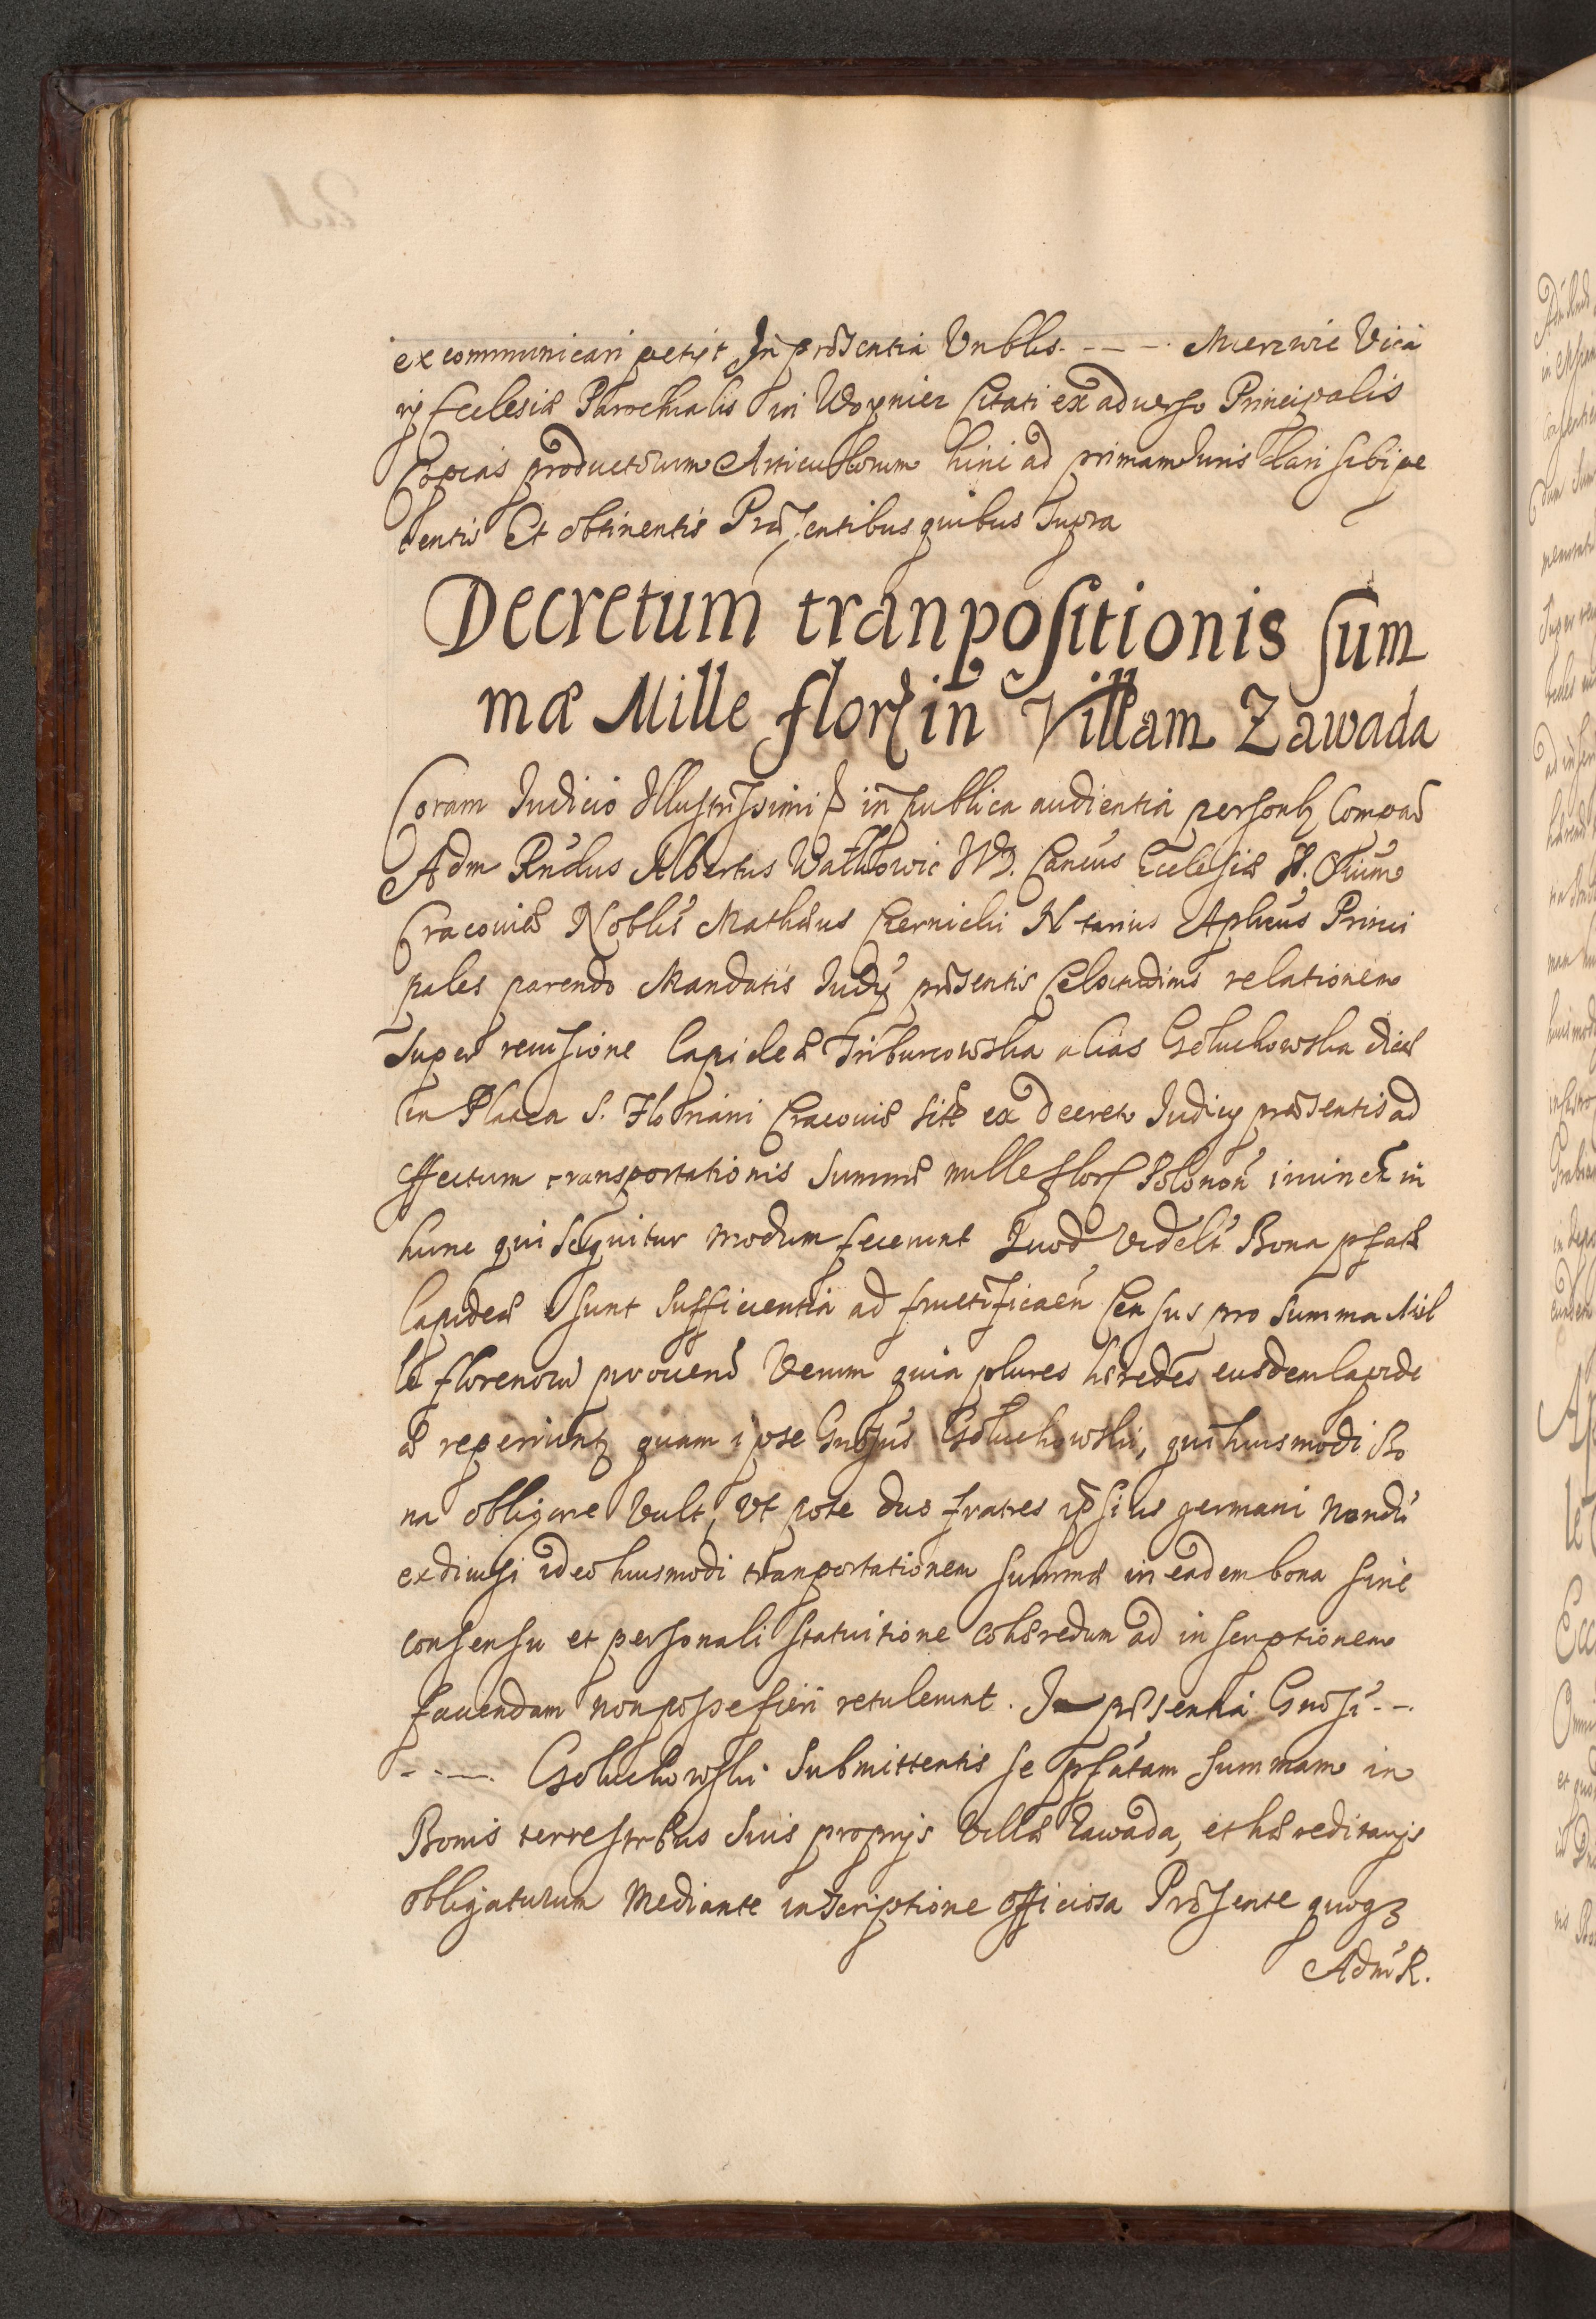 excommunicari petijt In prῶsentia Vnblis. - - - - Mierzwic Vica
rij Ecclesiæ Parochialis in Woynicz Citati ex aduerso Principalis
Copias productorum Articulorum hinc ad primam Iuris dari sibi pe
tentis Et obtinentis Præsentibus quibus supra
Decretum tranpositionis sum
mæ Mille flor in Villam Zawada
Coram Iudicio Illustrissimi in publica audientia personlr Compar
Adm Rndus Albertus Watkowic Canćus Ecclesiæ Oium
Cracouiæ Noblis Mathæus Czernicki Ntarius Aplicus Princi
pales parendo Mandatis Iudij prῶsentis Celsitudinis relationem
super reuisione lapideæ Triburcowska alias Gołuchowska dictæ
in Platea S. Floriani Cracouiæ sitæ ex decreto Iudicij præsentis ad
effectum transportationis Summæ mille flor Polonon in
hunc qui sequitur modum fecerunt Quod Videlt Bona pfatæ
lapideæ sunt sufficientia ad fructificaen Census pro summa Mil
le florenorum prouen Verum quia plures hæredes eiusdem lapide
æ reperiuntr quam ipse Gnosus Gołuchowski, qui huiusmodi Bo
na obligare Vult, Vt pote duo fratres ipsius germani nondu
exdiuisi ideo huiusmodi tranportationem summæ in eadem bona sine
consensu et personali statuitione cohæredum ad inscriptionem
fauendam non posse fieri retulerunt. In prῶsentia Gnosi - -
- - - - Gołuchowski submittentis se pfatam summam in
Bonis terrestrbus suis proprijs Villæ Zawada, et hæreditarijs
obligaturum mediante inscriptione officiosa Præsente quoqz
Adm R.